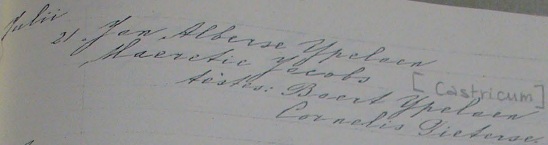 Julii
21. Jan Alberse Ypelaen
Maeretie Jacobs
testes: Baert Ypelaen [Castricum]
Cornelis Pieterse.